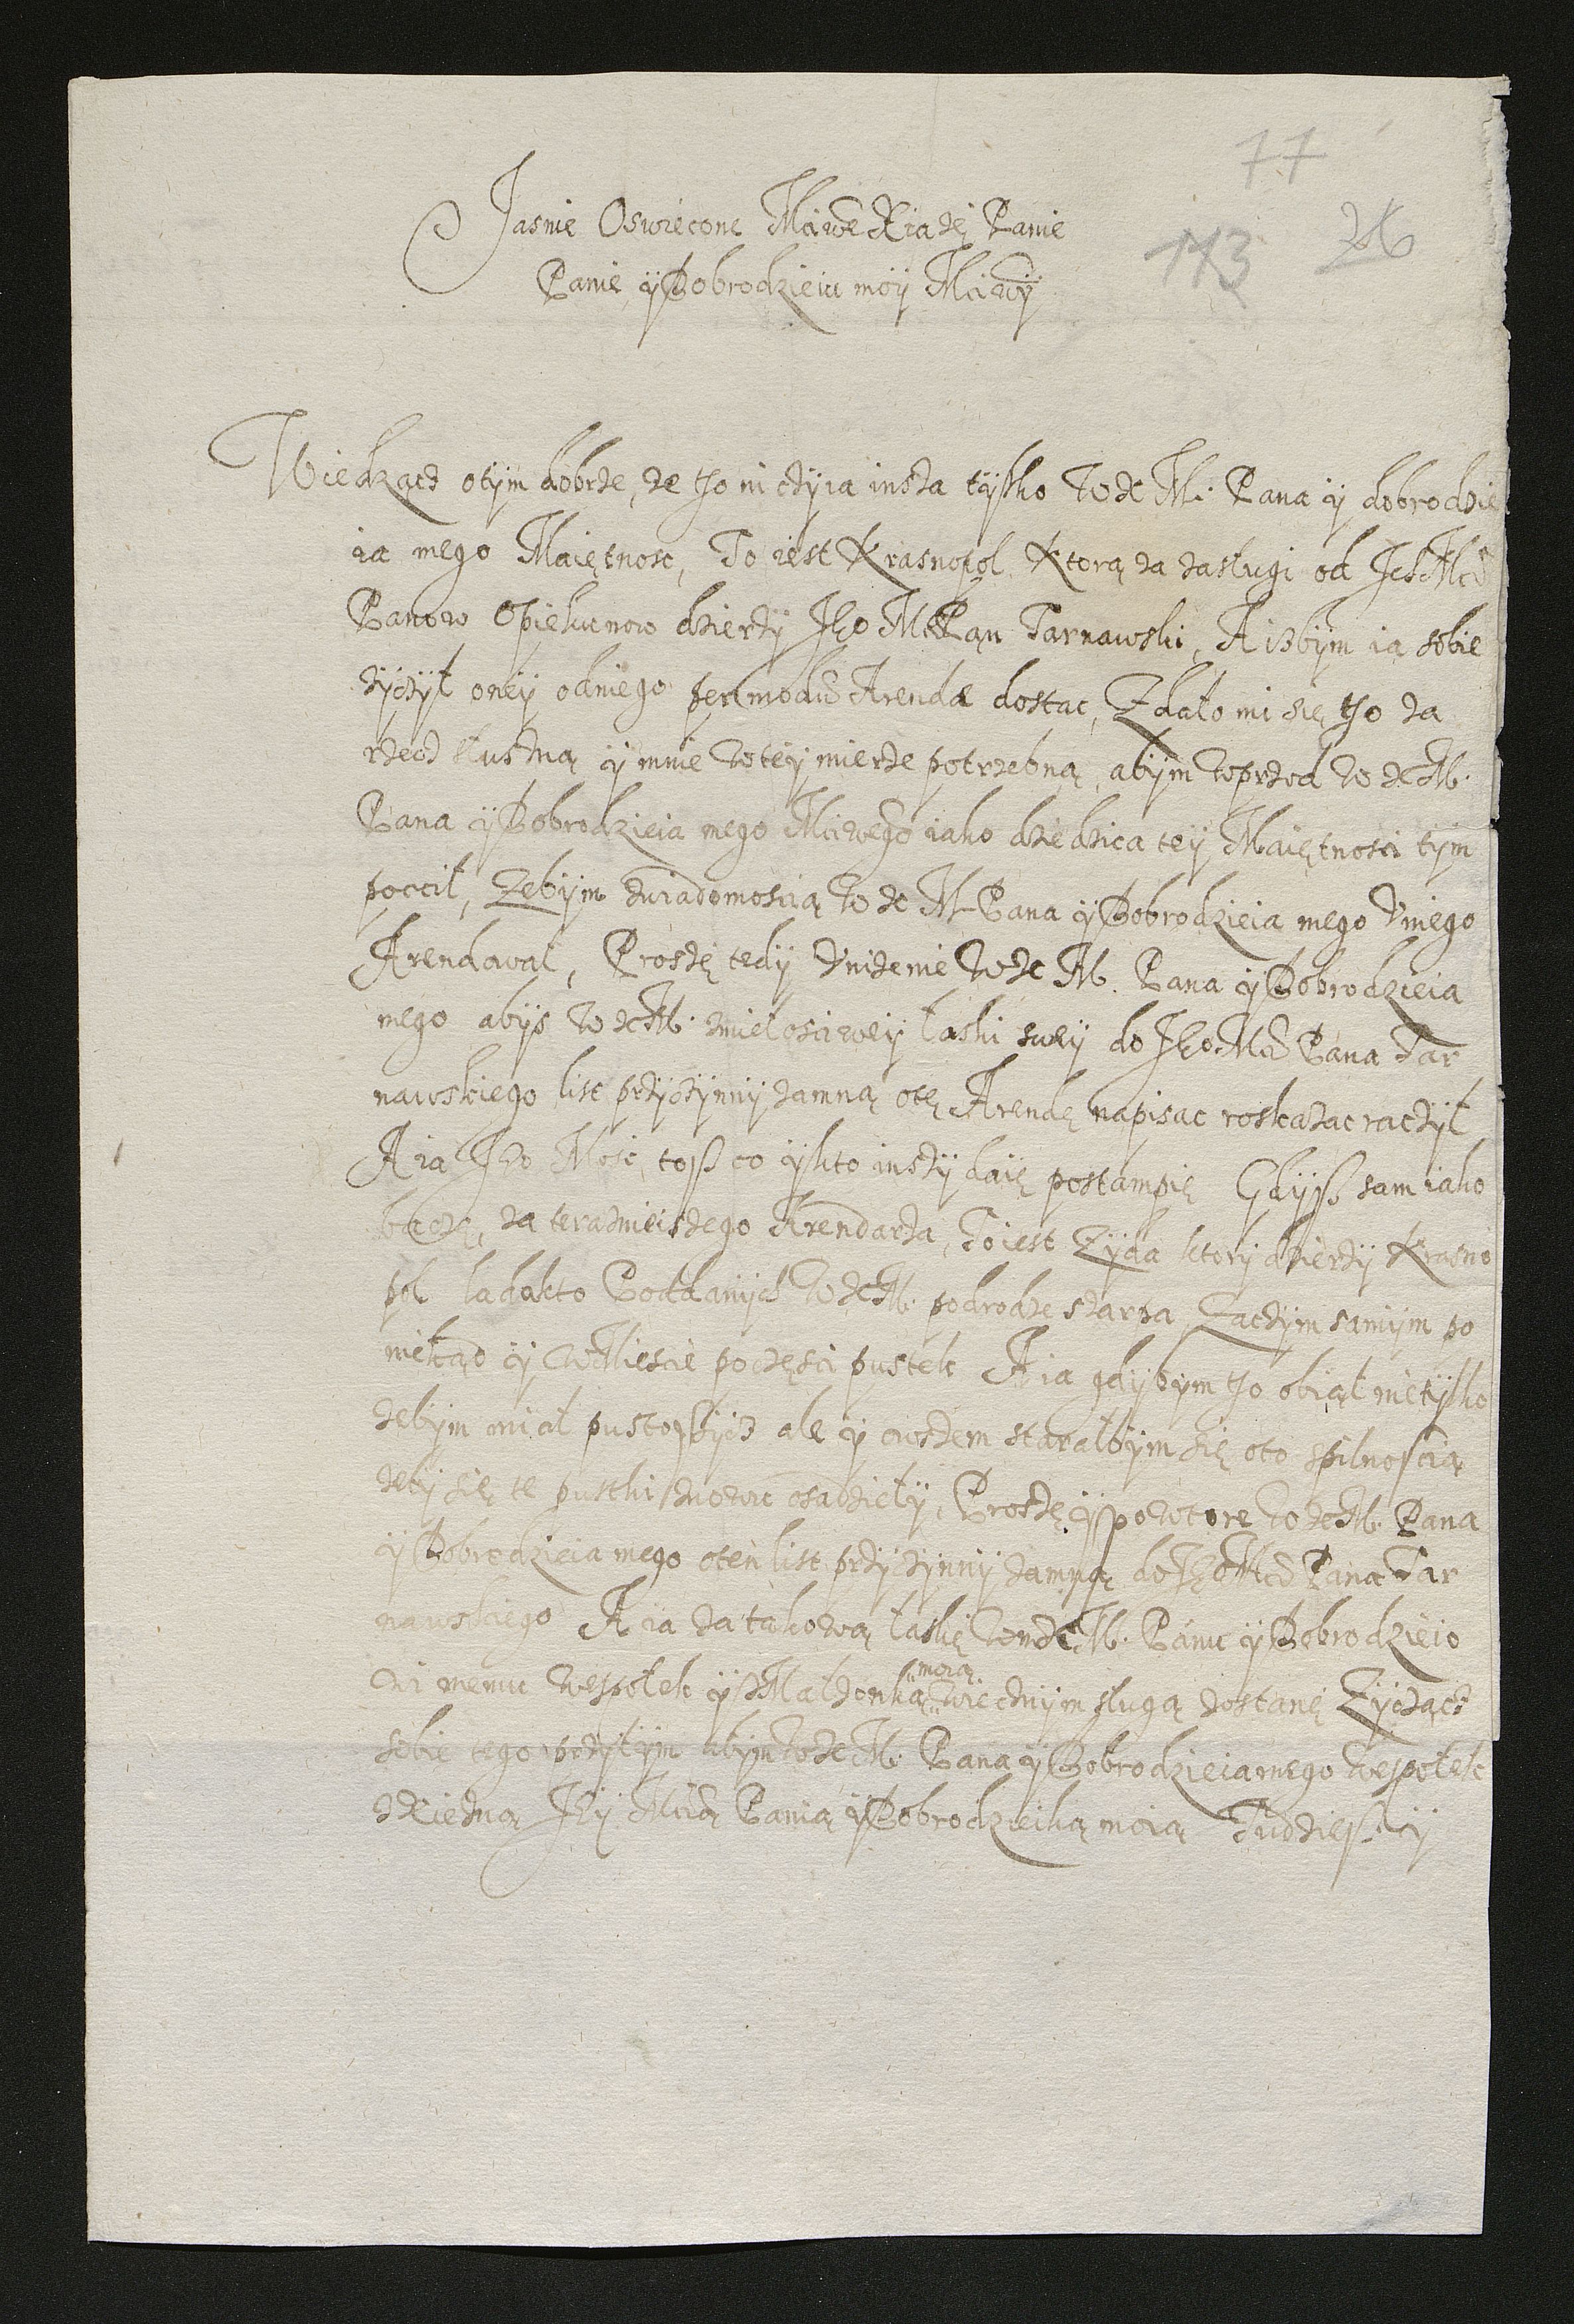 77
173 26
Jasnie Oswiecone Mciwe Xiążę Panie
Panie y Dobrodzieiu moy Mciwy
Wiedząc o tym dobrze, że to ni czyia insza tylko W X M. Pana y dobrodzie
ia mego Maiętnosc, To iest Krasnopol Ktorą za zasługi od Ich Mciów
Panow Opiekunow dzierży Jego Mć Pan Tarnawski, A iżbym ia sobie
życzył oney od niego per modum Arendæ dostac, Zdało mi się to za
rzecz słuszną y mnie w tey mierze potrzebną, abym wprzod W X M.
Pana y Dobrodzieia mego Mciwego iako dziedzica tey Maiętnosci tym
poccił, Zebym z wiadomoscią W X M Pana y Dobrodzieia mego v niego
Arendował, Proszę tedy vniżenie W X M. Pana y Dobrodzieia
mego abys W X M. z miłosciwey łaski swey do Jego Mci Pana Tar
nawskiego list przyczynny za mną o tę Arendę napisac roskazac raczył
A ia Jego Mosc toß co y kto inszy daię postąmpię Gdyß sam iako
baczę, za teraznieiszego Arendarza, To iest Zyda ktory dzierży Krasno
pol lada kto Poddanych W X M. po drodze szarpa, Zaczym samym po
niekąd y w Miescie po częsci pustek A ia gdybym to obiął nie tylko
zebym miał pustoszyc ale y owszem starałbym się o to s pilnoscią
zeby się te pustki znowu osadzieły, Proszę y powtore W X M. Pana
y Dobrodzieia mego o ten list przyczynny za mną do Jego Mci Pana Tar
nawskiego A ia za takową łaskę W X M. Panu y Dobrodzieio
wi memu wespołek y z Małzonką moią wiecznym sługą zostanę Zycząc
sobie tego przy tym abym W X M. Pana y Dobrodzieia mego wespołek
z Xiężną Jey Mcią Panią y Dobrodzieiką moią Tudzieß y